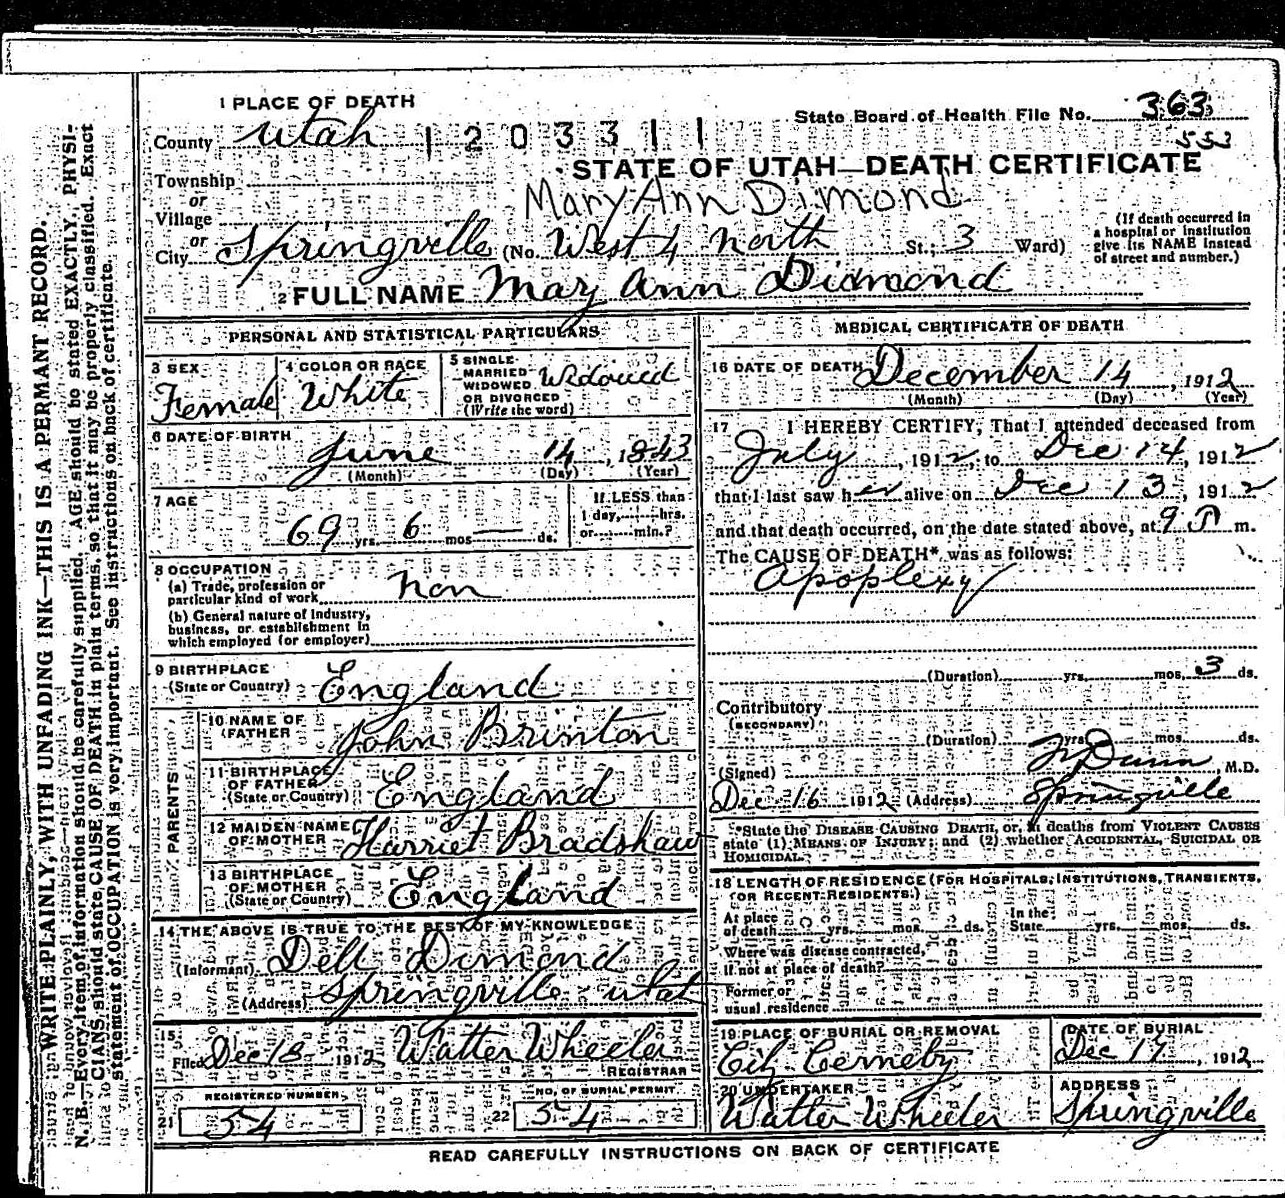 1 PLACE OF DEATH
State Board of Health File No. 363
553
County Utah 1203311
STATE OF UTAH—DEATH CERTIFICATE
Township
or
Mary Ann Dimond
Village
or
City Springville (No. West 4 North St.; 3 Ward)
(If death occurred in
a hospital or institution
give its NAME instead
of street and number.)
2 FULL NAME Mary Ann Diamond
PERSONAL AND STATISTICAL PARTICULARS
3 SEX
Female
4 COLOR OR RACE
White
5 SINGLE
MARRIED
WIDOWED
OR DIVORCED
(Write the word)
Widowed
6 DATE OF BIRTH
June 14, 1843
(Month) (Day) (Year)
7 AGE
69 yrs. 6 mos — ds.
If LESS than
1 day, hrs.
or min.?
8 OCCUPATION
(a) Trade, profession or
particular kind of work non
(b) General nature of industry,
business, or establishment in
which employed (or employer)
9 BIRTHPLACE
(State or Country) England
PARENTS
10 NAME OF
FATHER John Brinton
11 BIRTHPLACE
OF FATHER
(State or Country) England
12 MAIDEN NAME
OF MOTHER Harriet Bradshaw
13 BIRTHPLACE
OF MOTHER
(State or Country) England
14 THE ABOVE IS TRUE TO THE BEST OF MY KNOWLEDGE
(Informant) Dell Dimond
(Address) Springville Utah
15
Filed Dec 18 1912 Walter Wheeler
REGISTRAR
REGISTERED NUMBER
21 54
NO. OF BURIAL PERMIT
22 54
MEDICAL CERTIFICATE OF DEATH
16 DATE OF DEATH December 14, 1912
(Month) (Day) (Year)
17 I HEREBY CERTIFY, That I attended deceased from
July, 1912, to Dec 14, 1912
that I last saw her alive on Dec 13, 1912
and that death occurred, on the date stated above, at 9 P m.
The CAUSE OF DEATH* was as follows:
Apoplexy
(Duration) yrs. mos. 3 ds.
Contributory
(SECONDARY)
(Duration) yrs. mos. ds.
(Signed) Dunn M.D.
Dec 16 1912 (Address) Springville
*State the DISEASE CAUSING DEATH, or, in deaths from VIOLENT CAUSES
state (1) MEANS OF INJURY; and (2) whether ACCIDENTAL, SUICIDAL OR
HOMICIDAL.
18 LENGTH OF RESIDENCE (FOR HOSPITALS, INSTITUTIONS, TRANSIENTS,
OR RECENT RESIDENTS.)
At place
of death yrs. mos. ds.
In the
State yrs. mos. ds.
Where was disease contracted,
if not at place of death?
Former or
usual residence
19 PLACE OF BURIAL OR REMOVAL
City Cemeby
DATE OF BURIAL
Dec 17, 1912
20 UNDERTAKER
Walter Wheeler
ADDRESS
Springville
READ CAREFULLY INSTRUCTIONS ON BACK OF CERTIFICATE
WRITE PLAINLY, WITH UNFADING INK—THIS IS A PERMANT RECORD.
N. B.—Every item of information should be carefully supplied. AGE should be stated EXACTLY. PHYSI-
CIANS should state CAUSE OF DEATH in plain terms, so that it may be properly classified. Exact
statement of OCCUPATION is very important. See instructions on back of certificate.